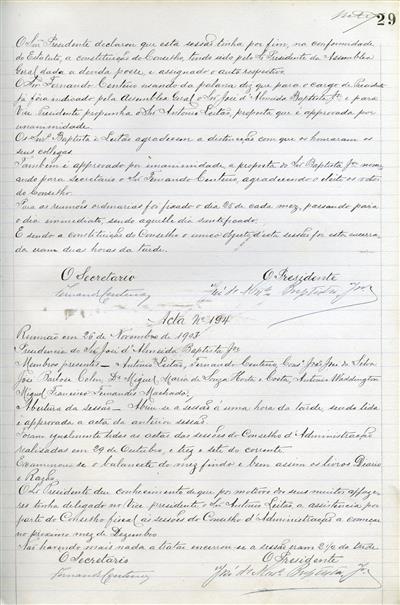 29
O Snr. Presidente declarou que esta sessão tinha por fim, na conformidade
do Estatuto, a constituição do Conselho, tendo sido pelo Sr. Presidente da Assembleia
Geral dada a devida posse e assignado o auto respectivo.
O Snr. Fernando Centeno usando da palavra diz que para o cargo de Presidente
já fôra indicado pela Assembleia Geral o Sr. José d'Almeida Baptista Jor. e para
Vice Presidente propunha o Sr. Antonio Leitão, proposta que é approvada por
unanimidade.
Os Snrs. Baptista e Leitão agradecem a distincção com que os honraram os
seus collegas.
Tambem é approvado por unanimidade a proposta do Sr. Baptista Jor. nome-
ando para Secretario o Sr. Fernando Centeno, agradecendo o eleito os votos
do Conselho.
Para as reuniões ordinarias foi fixado o dia 28 de cada mez, passando para
o dia immediato, sendo aquelle dia santificado.
E sendo a constituição do Conselho o unico objecto d'esta sessão foi esta encerra-
da eram duas horas da tarde.
O Secretario O Presidente
Fernando Centeno José d'Almda. Baptista Jor.
Acta Nº 194
Reunião em 26 de Novembro de 1903
Presidencia do Sr. José d'Almeida Baptista Jor.
Membros presentes – Antonio Leitão, Fernando Centeno, José da Silva
José Barbosa Colen, Dr. Miguel Maria de Souza Horta e Costa, Antonio Waddington
Miguel Francisco Fernandes Machado.
Abertura da sessão – Abriu-se a sessão á uma hora da tarde sendo lida
e approvada a acta da anterior sessão.
Foram egualmente lidas as actas das sessões do Conselho d'Administração
realisadas em 29 de Outubro, e treze e sete do corrente.
Examinou-se o balancete do mez findo e bem assim os livros Diario
e Razão.
O Sr. Presidente deu conhecimento de que por motivo dos seus muitos affaze-
res tinha delegado no Vice presidente o Sr. Antonio Leitão, a assistencia por
parte do Conselho fiscal ás sessões do Conselho d'Administração a começar
no proximo mez de Dezembro
Não havendo mais nada a tratar encerrou-se a sessão eram 2½ da tarde
O Secretario O Presidente
Fernando Centeno José d'Almda. Baptista Jor.